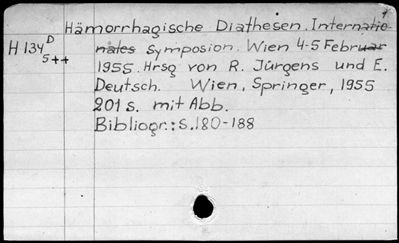 Hämorrhagische Diathesen. Internatio-
H 134 D nales Symposion. Wien 4-5 Februar
5++ 1955. Hrsg von R. Jürgens und E.
Deutsch. Wien, Springer, 1955
201 s. mit Abb.
Bibliogr.: s.180-188